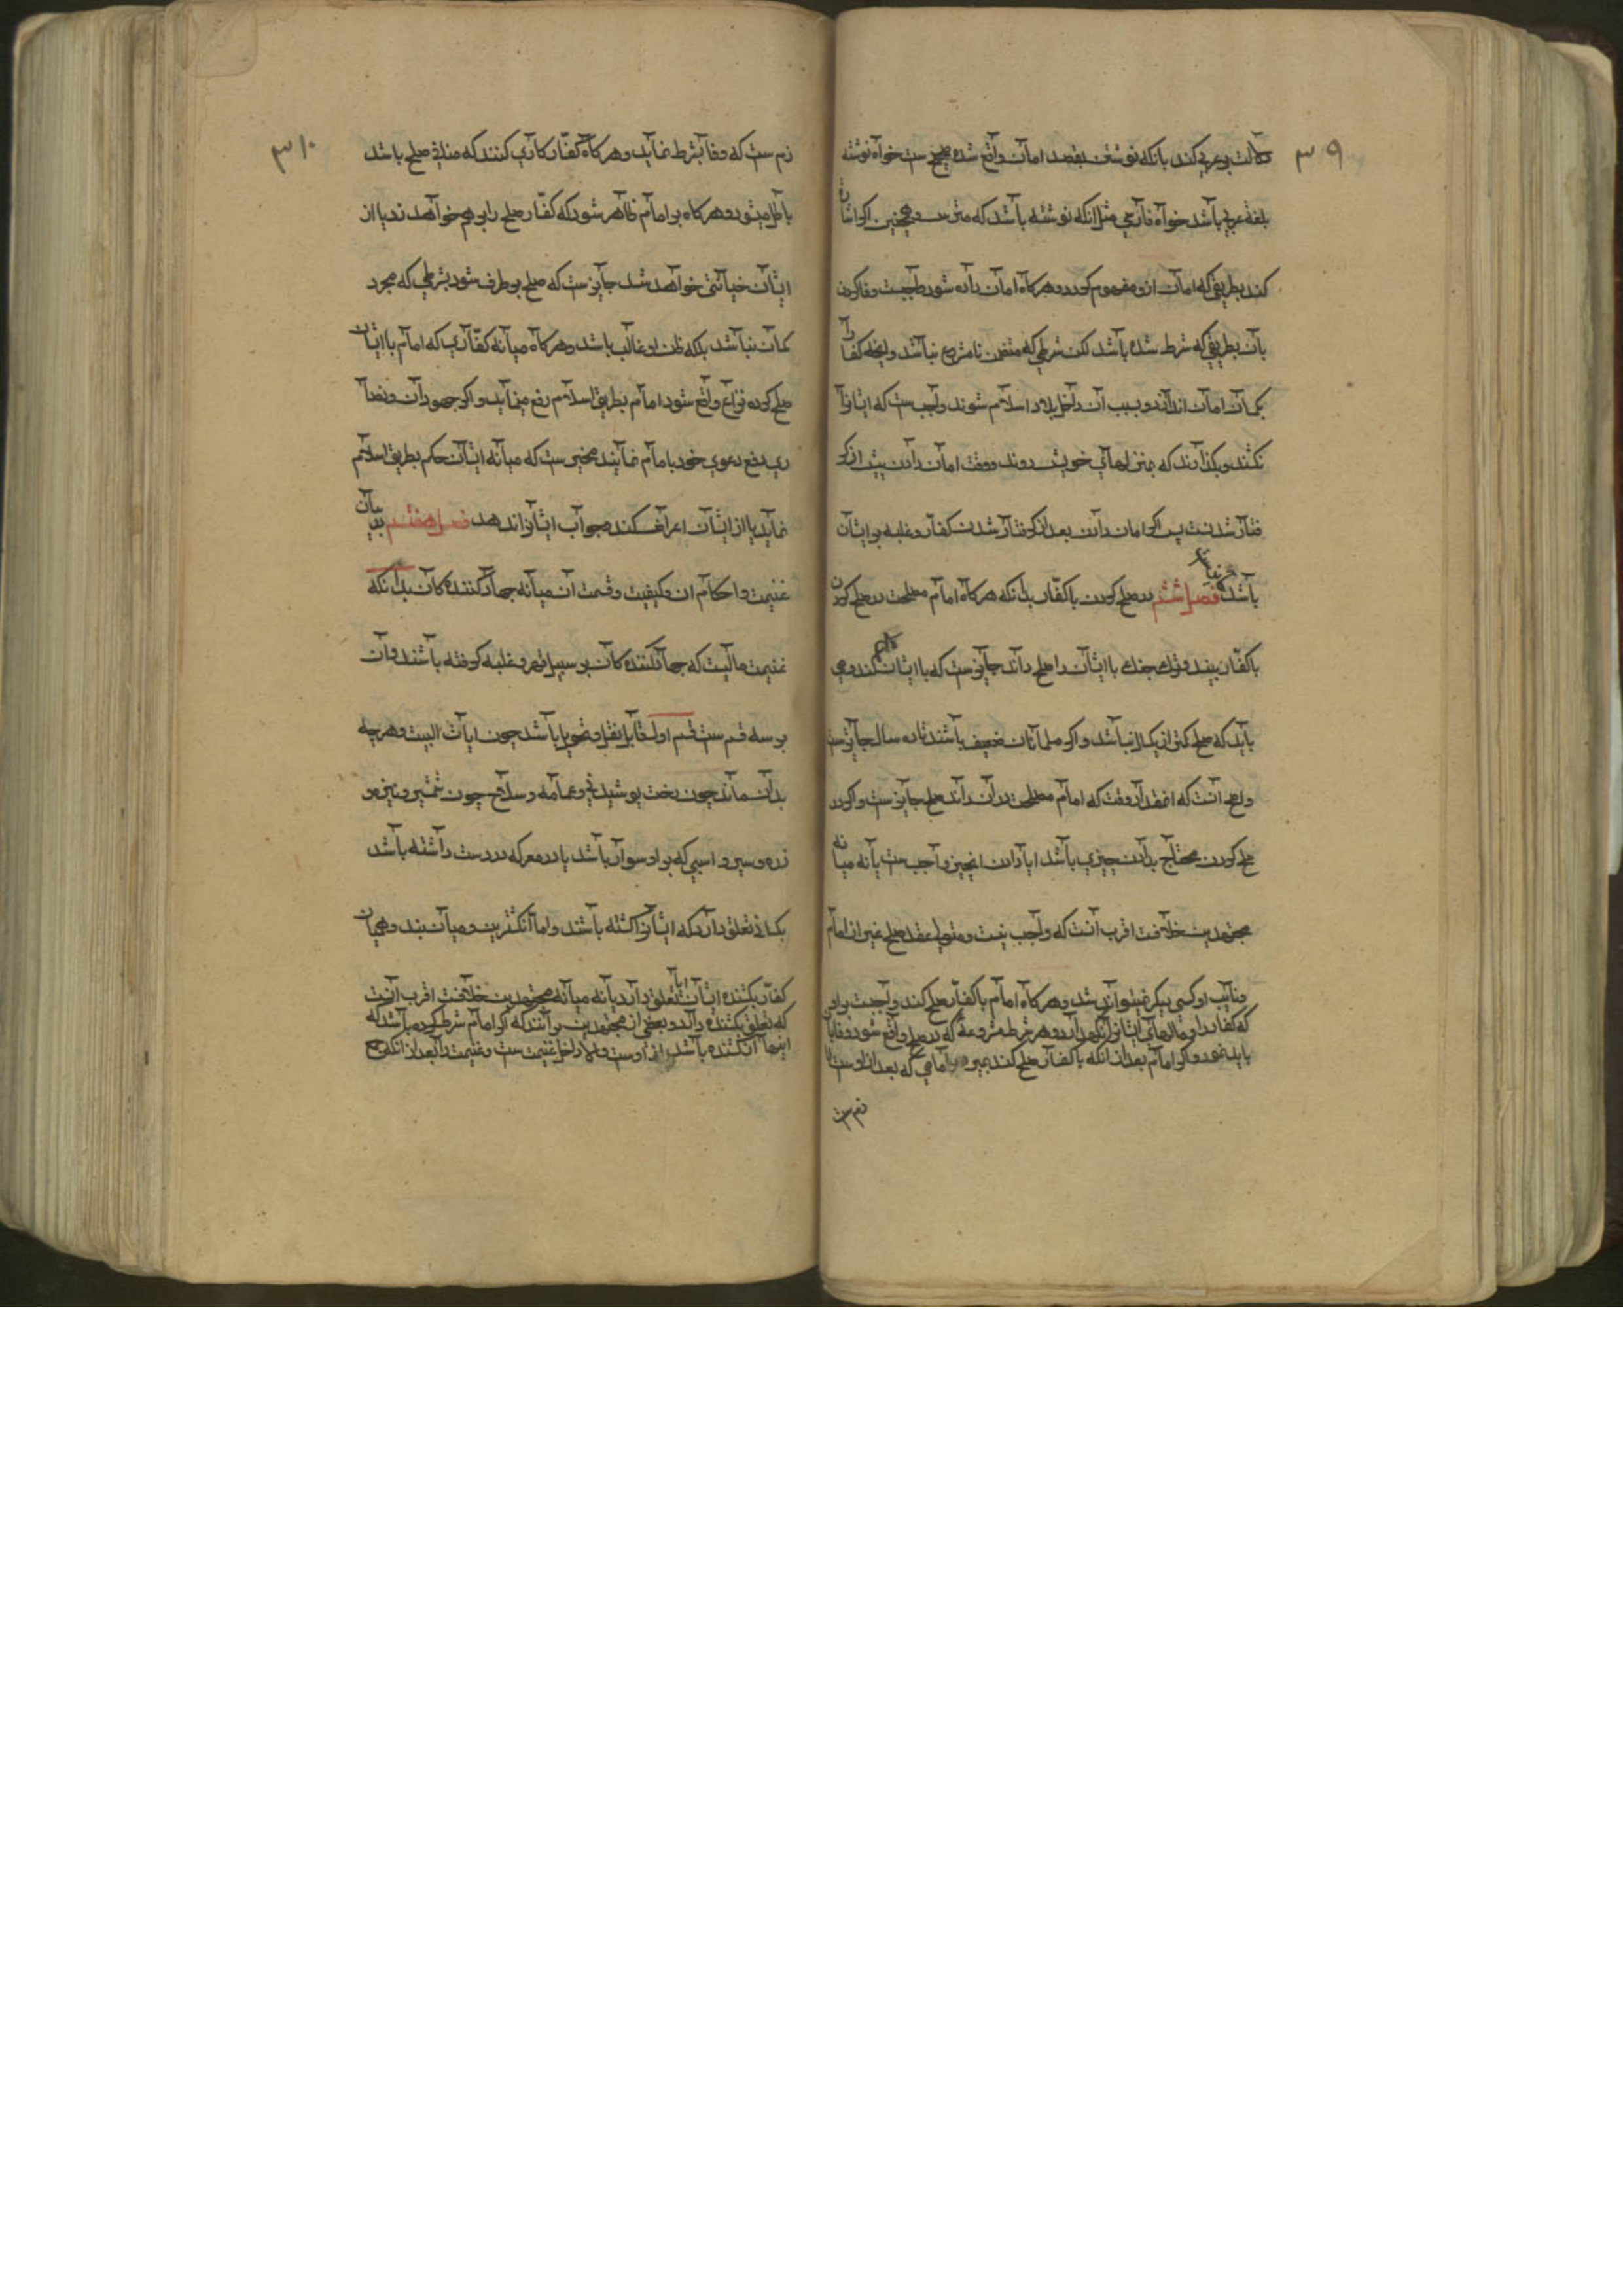 ۳۹
دلالت بر عربی کند بانکه نوشتن بقصد امان واقع شده صحیح ست خواه نوشته
بلغة عربی باشد خواه فارسی مثل انکه نوشته باشد که مترس و همچنین اکر اشاره
کند بطریقی که امان ازو مفهوم کردد و هرکاه امان داده شود واجبست وفا کردن
بآن بطریقی که شرط شده باشد لکن شرطی که متضمن نامشروع نباشد و انجا که کفار را
بکمان امان اندازند و بسبب آن داخل بلاد اسلام شوند واجب ست که ایشانرا
نکشند و بکذارند که بمنزلهای خویش روند و وقت امان دادن پیش از کر
فتار شدنست پس اکر امان دادن بعد از کرفتار شدن کفار و غلبه بر ایشان
باشد فصل ششم در صلح کردن با کفّار بدانکه هرکاه امام مصلحت در صلح کردن
با کفّار بیند و ترک جنک با ایشان را صلح داند جایز ست که با ایشان صلح کند و می
باید که صلح کمتر از یکسال نباشد و اکر مسلمانان ضعیف باشند تا ده سال جایز ست
و اصح انست که انقدر از وقت که امام مصلحت در آن داند صلح جایز ست و اکر در
صلح کردن محتاج بدادن چیزی باشد ایا دادن انچیز واجب ست یا نه میانه
مجتهدین خلافست اقرب انست که واجب نیست و متولی عقد صلح غیر از امام
و نایب او کسی دیکر نمیتواند شد و هرکاه امام با کفار صلح کند واجبست بر او
که کفار را و مالهای ایشانرا نکهدارد و هر شرط مشروعه که در صلح واقع شود وفا بان
باید نمود و اکر امام بعد از انکه با کفار صلح کند بمیرد بر امامی که بعد از اوست لا
زم ست
۳۱۰
زم ست که وفا بشرط نماید و هرکاه کفّار کاری کنند که منافی صلح باشد
باطل میشود و هرکاه بر امام ظاهر شود که کفّار صلح را بر هم خواهند زد یا از
ایشان خیانتی خواهد شد جایز ست که صلح بر طرف شود بشرطی که مجرد
کمان نباشد بلکه ظن او غالب باشد و هرکاه میانه کفّاری که امام با ایشان
صلح کرده نزاع واقع شود امام بطریق اسلام رفع مینماید و اکر جهودان و نصا
ری رفع دعوی خود بامام نمایند مخیر ست که میانه ایشان حکم بطریق اسلام
نماید یا از ایشان اعراض کند و جواب ایشانرا ندهد فصل هفتم در بیان
غنیمت و احکام ان و کیفیت و قسمت آن میانه جهاد کنندکان بدانکه
غنیمت مالیست که جهاد کنندکان بر سبیل قهر و غلبه کرفته باشند و آن
بر سه قسم ست قسم اول قابل نقل و تحویل باشد چون اثاث البیت و هرچه
بدان ماند چون رخت پوشیدنی و عمامه و سلاح چون شمشیر و نیزه و
زره و سپر و اسبی که بر او سوار باشد یا در معرکه در دست داشته باشد
بکسانی تعلق دارد که ایشانرا کشته باشند و اما آنکشترین و میان بند و همیان
کفار بکشنده ایشان ایا تعلق دارد یا نه میانه مجتهدین خلافست اقرب انست
که تعلق بکشنده دارد و بعضی از مجتهدین برآنند که اکر امام شرط کرده باشد که
اینها از کشنده باشد از اوست و الا داخل غنیمت ست و غنیمت را بعد از انکه